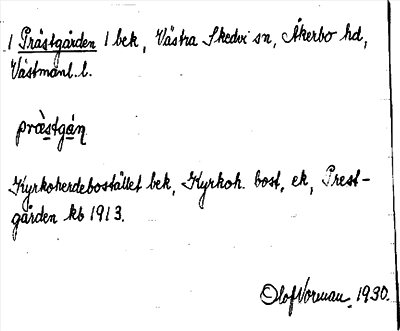 1 Prästgården 1 bek, Västra Skedvi sn, Åkerbo hd,
Västmanl. l.
præ̀stgáṇ
Kyrkoherdebostället bek, Kyrkoh. bost, ek, Prest-
gården kb 1913.
Olof Norman. 1930.